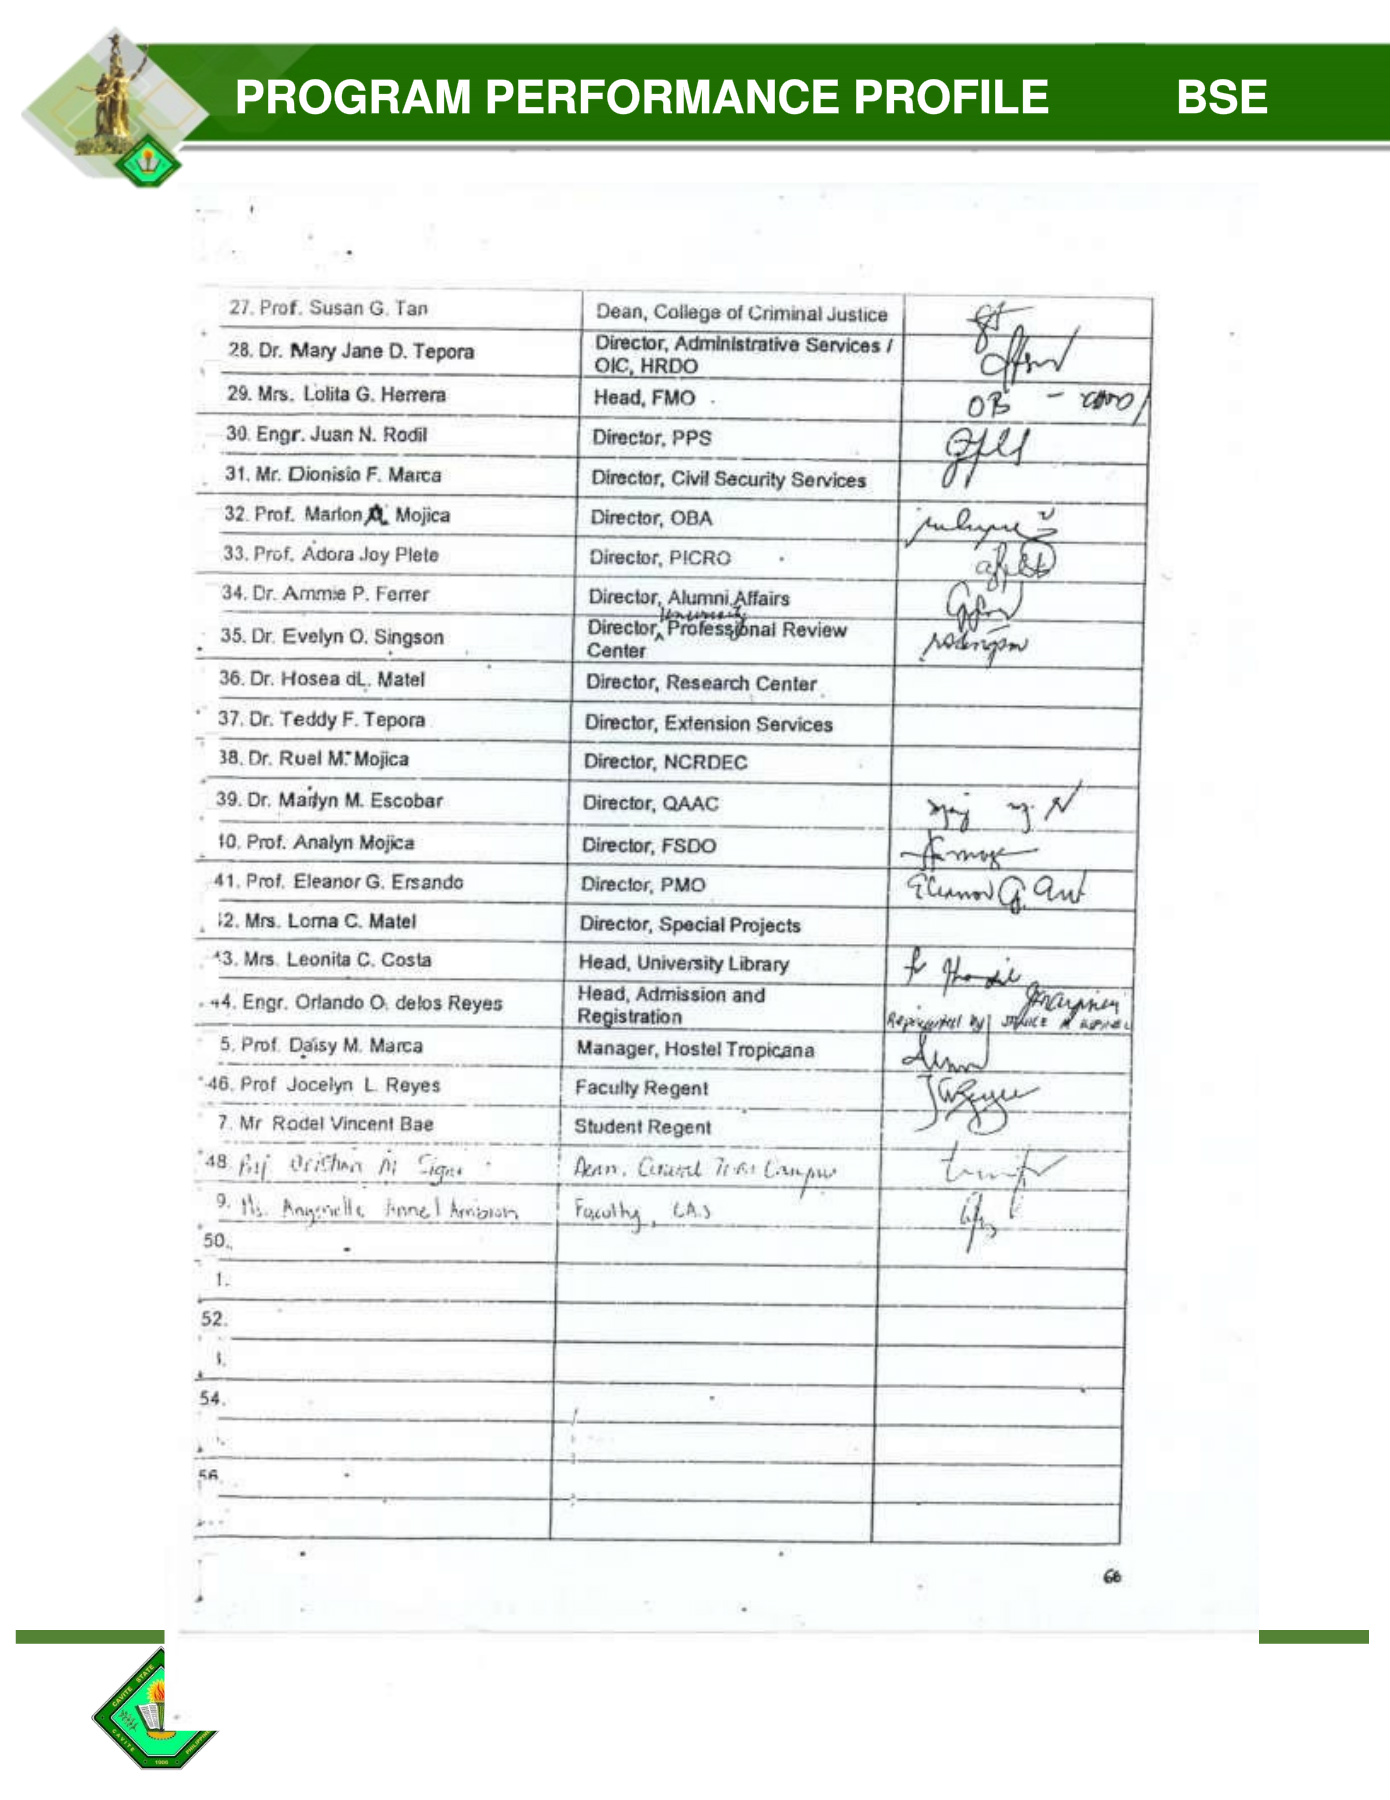 PROGRAM PERFORMANCE PROFILE BSE
27. Prof. Susan G. Tan Dean, College of Criminal Justice
28. Dr. Mary Jane D. Tepora Director, Administrative Services /
OIC, HRDO
29. Mrs. Lolita G. Herrera Head, FMO OB -
30. Engr. Juan N. Rodil Director, PPS
31. Mr. Dionisio F. Marca Director, Civil Security Services
32. Prof. Marlon A. Mojica Director, OBA
33. Prof. Adora Joy Plete Director, PICRO
34. Dr. Ammie P. Ferrer Director, Alumni Affairs
University
35. Dr. Evelyn O. Singson Director, Professional Review
Center
36. Dr. Hosea dL. Matel Director, Research Center
37. Dr. Teddy F. Tepora Director, Extension Services
38. Dr. Ruel M. Mojica Director, NCRDEC
39. Dr. Marlyn M. Escobar Director, QAAC
40. Prof. Analyn Mojica Director, FSDO
41. Prof. Eleanor G. Ersando Director, PMO Eleanor G.
42. Mrs. Lorna C. Matel Director, Special Projects
43. Mrs. Leonita C. Costa Head, University Library
44. Engr. Orlando O. delos Reyes Head, Admission and
Registration Represented by
5. Prof. Daisy M. Marca Manager, Hostel Tropicana
46. Prof Jocelyn L. Reyes Faculty Regent
7. Mr Rodel Vincent Bae Student Regent
48. Prof Cristina M Signo Dean, Campus
9. Ms. Annel Ambion Faculty, CAS
50.
1.
52.
54.
56.
66
CAVITE STATE
CAVITE PHILIPPINES
1906